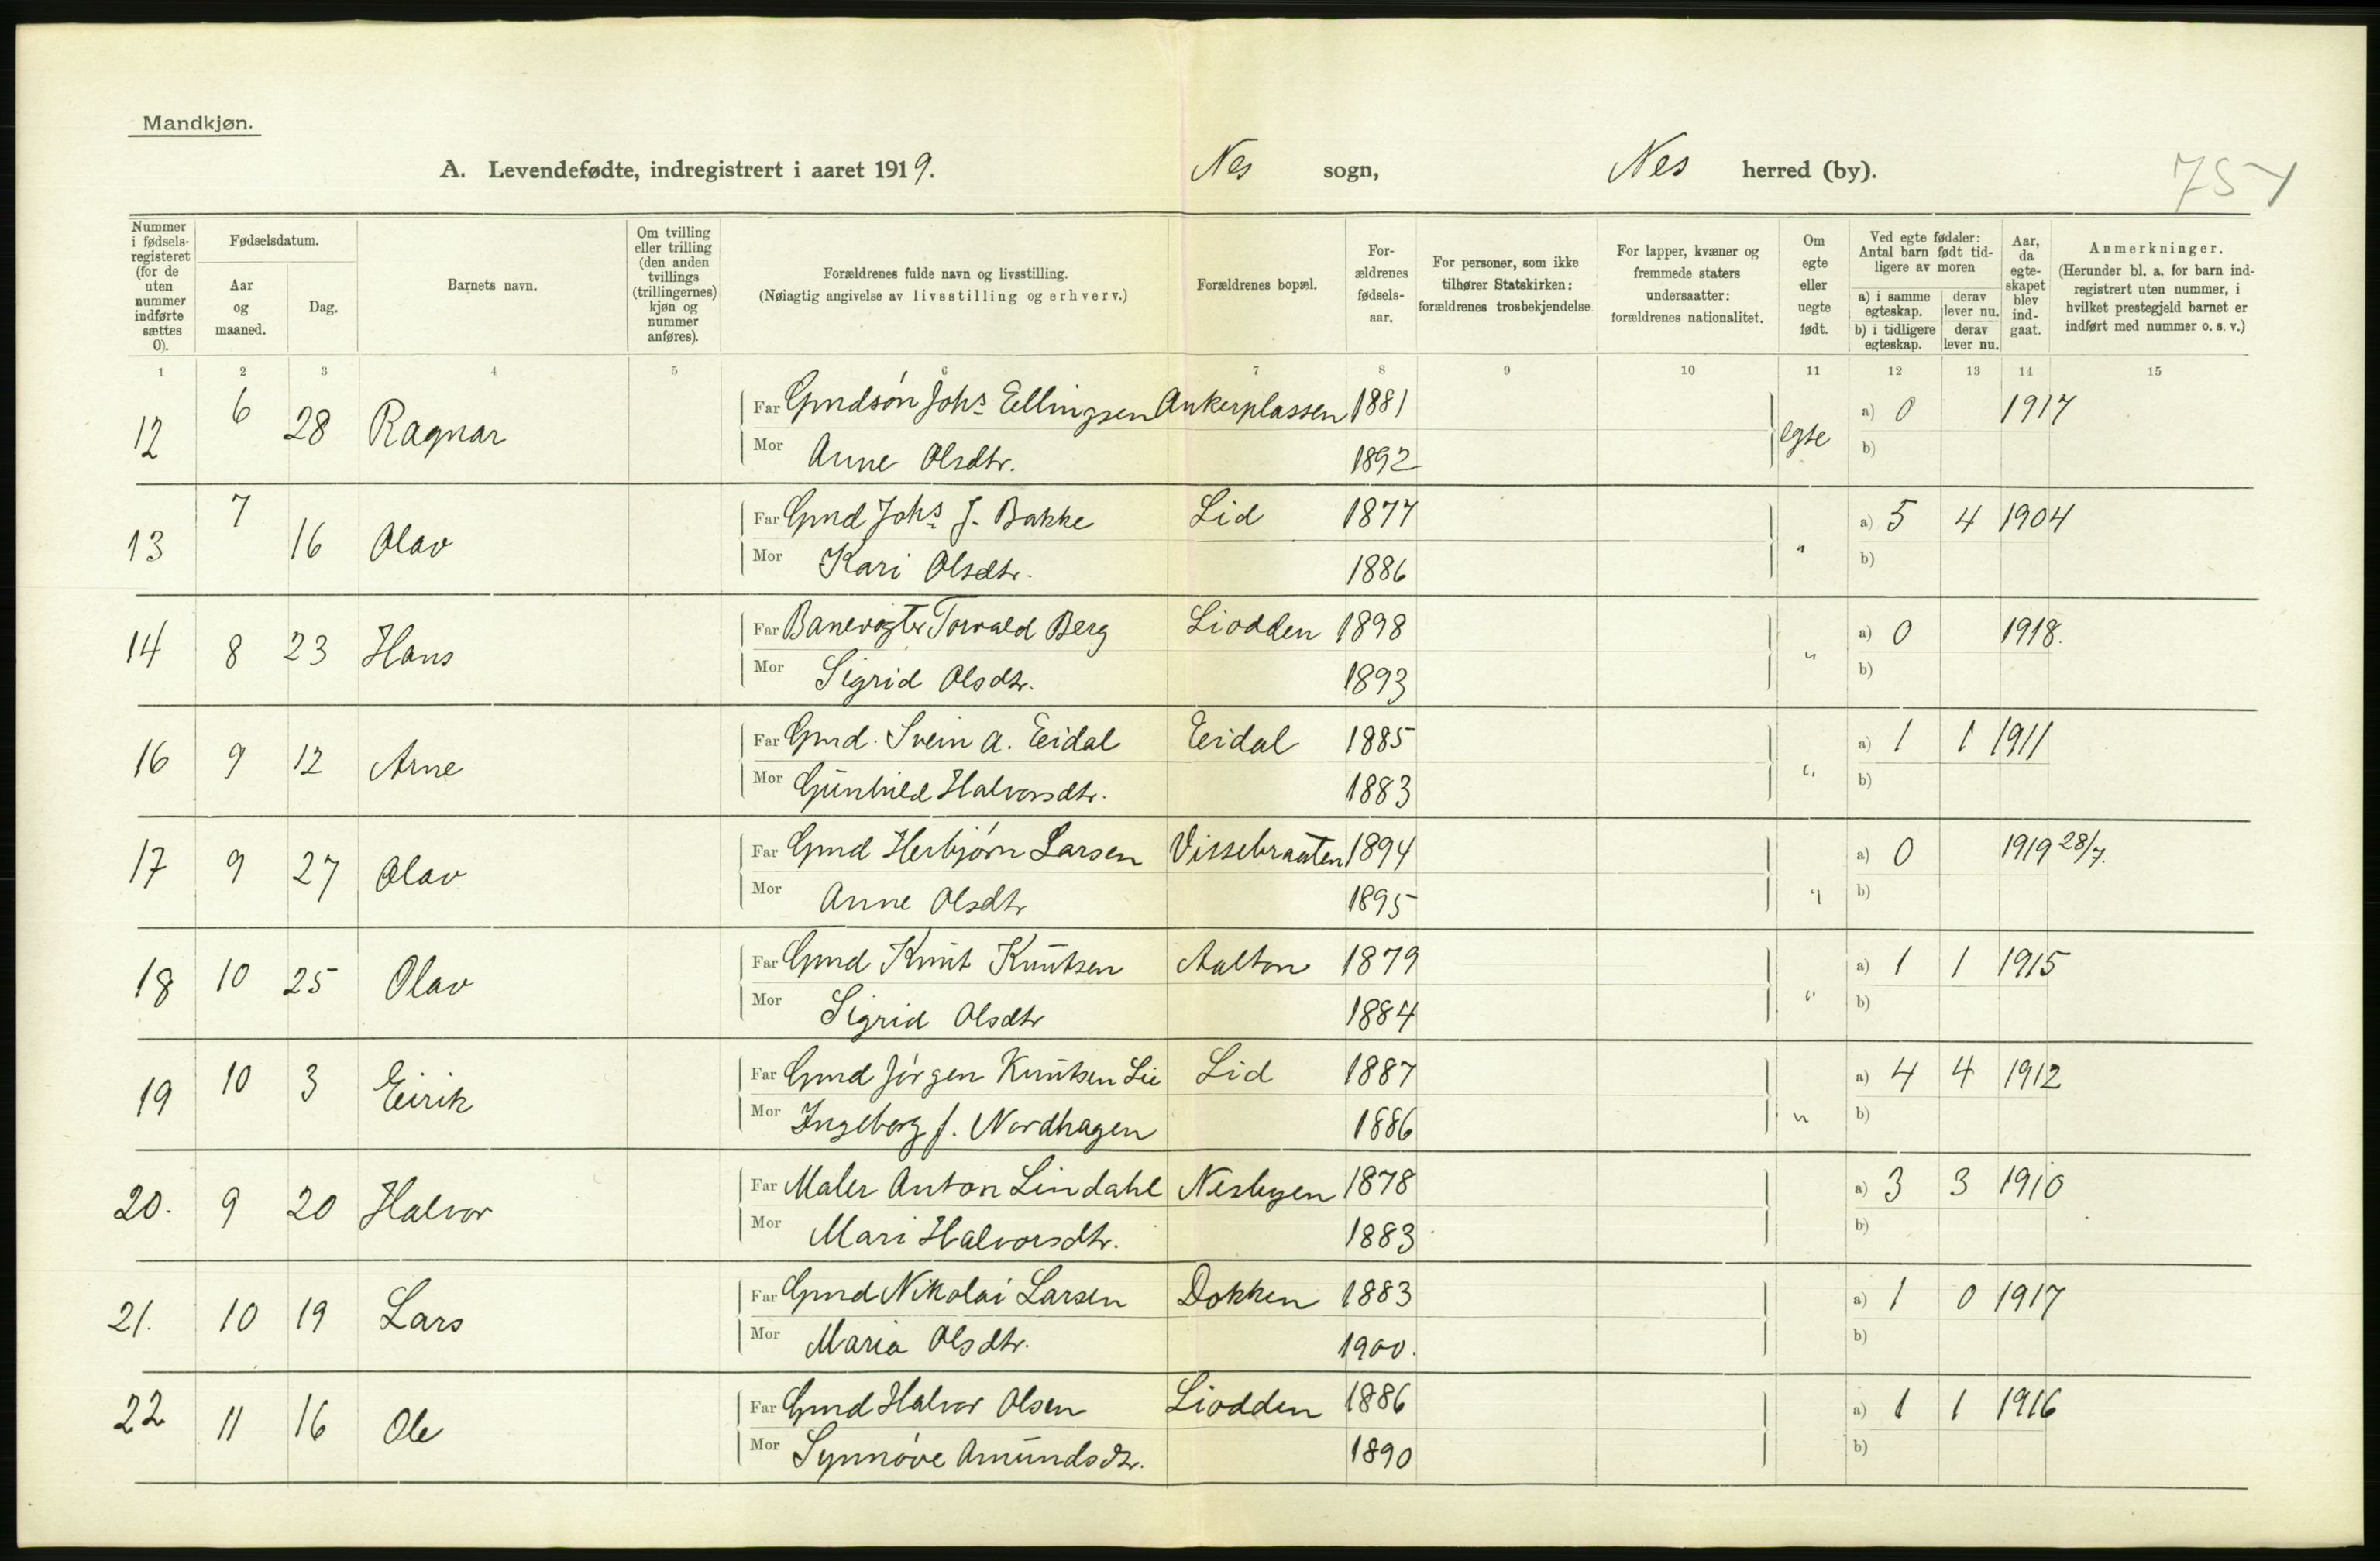 Mandkjøn.
A. Levendefødte, indregistrert i aaret 1919. Nes sogn, Nes herred (by).
Nummer i fødsels-registeret (for de uten nummer indførte sættes 0).
Fødselsdatum.
Aar og maaned.
Dag.
Barnets navn.
Om tvilling eller trilling (den anden tvillings (trillingernes) kjøn og nummer anføres).
Forældrenes fulde navn og livsstilling.
(Nøiagtig angivelse av livsstilling og erhverv.)
Forældrenes bopæl.
For-ældrenes fødsels-aar.
For personer, som ikke tilhører Statskirken: forældrenes trosbekjendelse.
For lapper, kvæner og fremmede staters undersaatter: forældrenes nationalitet.
Om egte eller uegte født.
Ved egte fødsler: Antal barn født tid-ligere av moren
a) i samme egteskap. derav lever nu.
b) i tidligere egteskap. derav lever nu.
Aar, da egte-skapet blev ind-gaat.
Anmerkninger.
(Herunder bl. a. for barn ind-registrert uten nummer, i hvilket prestegjeld barnet er indført med nummer o. s. v.)
1 2 3 4 5 6 7 8 9 10 11 12 13 14 15
12 6 28 Ragnar Far Gmdsøn Johs Ellingsen Ankerplassen 1881 egte a) 0 1917
Mor Anne Olsdtr. 1892 b)
13 7 16 Olav Far Gmd Johs J. Bakke Lid 1877 " a) 5 4 1904
Mor Kari Olsdtr. 1886 b)
14 8 23 Hans Far Banevogter Torvald Berg Liodden 1898 " a) 0 1918.
Mor Sigrid Olsdtr. 1893 b)
16 9 12 Arne Far Gmd. Svein A. Eidal Eidal 1885 " a) 1 1 1911
Mor Gunhild Halvorsdtr. 1883 b)
17 9 27 Olav Far Gmd Herbjørn Larsen Vissebraaten 1894 " a) 0 1919 28/7.
Mor Anne Olsdtr 1895 b)
18 10 25 Olav Far Gmd Knut Knutsen Aalton 1879 " a) 1 1 1915
Mor Sigrid Olsdtr 1884 b)
19 10 3 Eirik Far Gmd Jørgen Knutsen Lie Lid 1887 " a) 4 4 1912
Mor Ingeborg f. Nordhagen 1886 b)
20. 9 20 Halvor Far Maler Anton Lindahl Nesbyen 1878 a) 3 3 1910
Mor Mari Halvorsdtr. 1883 b)
21. 10 19 Lars Far Gmd Nikolai Larsen Dokken 1883 a) 1 0 1917
Mor Maria Olsdtr. 1900. b)
22 11 16 Ole Far Gmd Halvor Olsen Liodden 1886 a) 1 1 1916
Mor Synnøve Amundsdtr. 1890 b)